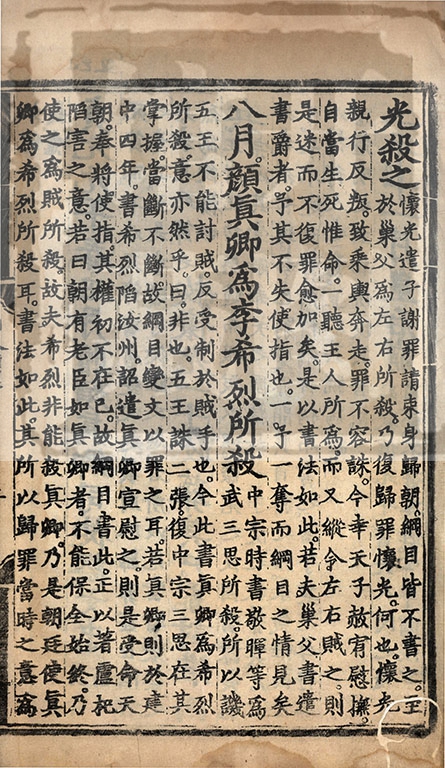 光殺之
懷光遣子謝罪。請束身歸朝。綱目皆不書之。王
於巢父爲左右所殺。乃復歸罪懷光。何也。懷光
親行反叛。致乘輿奔走。罪不容誅。今幸天子赦宥慰撫。
自當生死惟命。一聽王人所爲。而又縱令左右賊之。則
是迷而不復。罪愈加矣。是以書法如此。若夫巢父書遣
書爵者。予其不失使指也。一予一奪而綱目之情見矣
八月。顏眞卿爲李希烈所殺
中宗時書敬暉等爲
武三思所殺。所以譏
五王不能討賊。反受制於賊手也。今此書眞卿爲希烈
所殺。意亦然乎。曰。非也。五王誅二張。復中宗。三思在其
掌握。當斷不斷。故綱目變文以罪之耳。若眞卿。則於建
中四年。書希烈陷汝州。詔遣眞卿宣慰之。則是受命天
朝。奉將使指。其權初不在己。故綱目書此。正以著盧杞
陷害之意。若曰朝有老臣如眞卿者。不能保全始終。乃
使之爲賊所殺。故夫希烈非能殺眞卿。乃是朝廷使眞
卿爲希烈所殺耳。書法如此。其所以歸罪當時之意爲